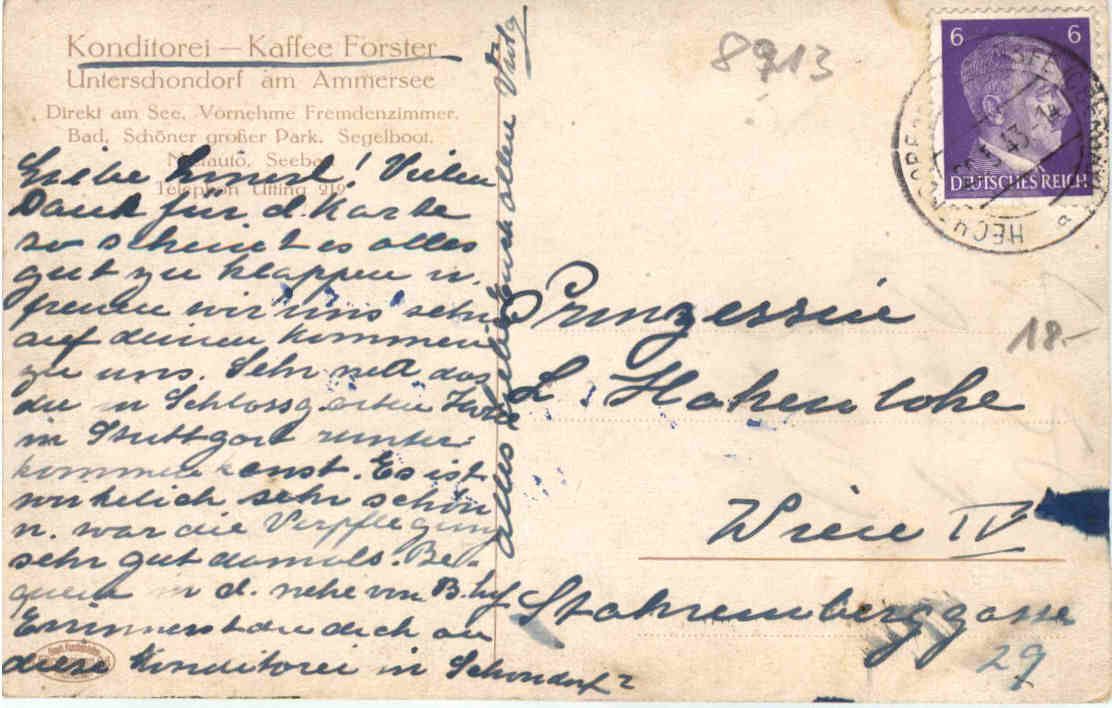 Konditorei — Kaffee Forster
Unterschondorf am Ammersee
Direkt am See. Vornehme Fremdenzimmer.
Bad. Schöner großer Park. Segelboot.
Mietauto. Seebad
Telephon Utting 219
Liebe! Vielen
Dank für d. Karte
so scheint es alles
gut zu klappen u.
freuen wir uns sehr
auf deinen Kommen
zu uns. Sehr nett das
du in Schlossgarten Hotel
in Stuttgart unter
kommen kanst. Es ist
wirkelich sehr schön
u. war die Verpflegung
sehr gut damals. Be-
quem in d. nehe von B.hof
Errinnerst du dich an
diese Konditorei in Schondorf?
Alles
8913
6 6
DEUTSCHES REICH
43.-14
HECH
18.-
Prinzessin
L. Hohenlohe
Wien IV
Starhemberggasse
29